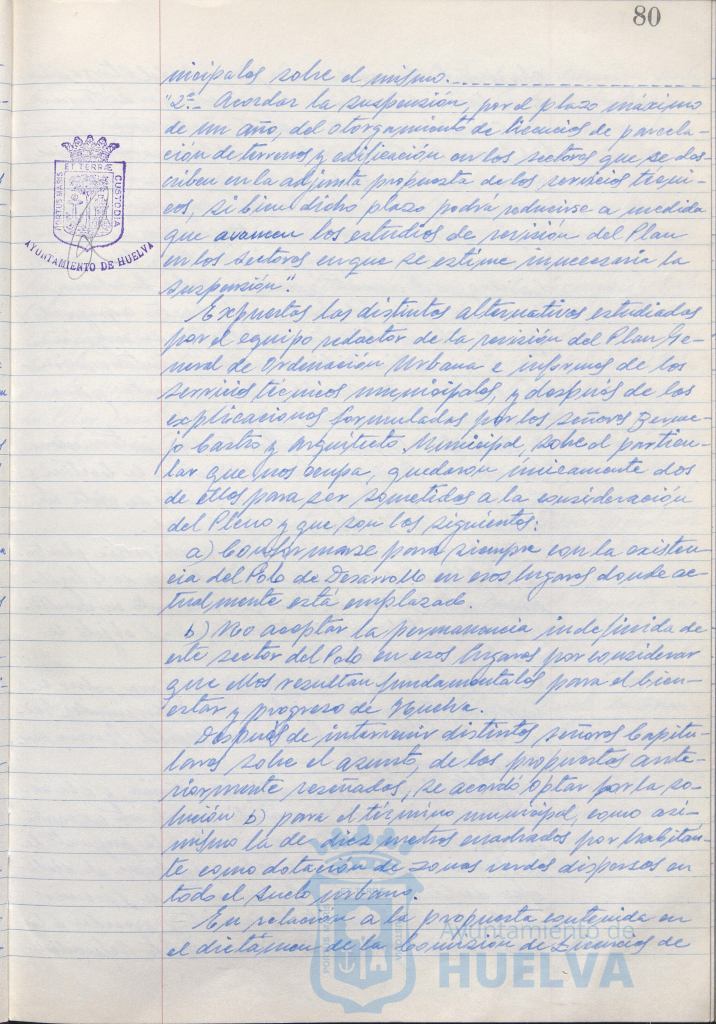 80
nicipales sobre el mismo.
"2º.- Acordar la suspensión, por el plazo máximo
de un año, del otorgamiento de licencias de parcela-
ción de terrenos y edificación en los sectores que se des-
criben en la adjunta propuesta de los servicios técni-
cos, si bien dicho plazo podrá reducirse a medida
que avancen los estudios de revisión del Plan
en los sectores en que se estime innecesaria la
suspensión".
Expuestas las distintas alternativas estudiadas
por el equipo redactor de la revisión del Plan Ge-
neral de Ordenación Urbana e informes de los
servicios técnicos municipales, y después de las
explicaciones formuladas por los señores Berme-
jo Castro y Arquitecto Municipal, sobre el particu-
lar que nos ocupa, quedaron únicamente dos
de ellas para ser sometidas a la consideración
del Pleno y que son las siguientes:
a) Conformarse para siempre con la existen-
cia del Polo de Desarrollo en esos lugares donde ac-
tualmente está emplazado.
b) No aceptar la permanencia indefinida de
este sector del Polo en esos lugares por considerar
que ellos resultan fundamentales para el bien-
estar y progreso de Huelva.
Después de intervenir distintos señores Capitu-
lares sobre el asunto, de las propuestas ante-
riormente reseñadas, se acordó optar por la so-
lución b) para el término municipal, como asi-
mismo la de diez metros cuadrados por habitan-
te como dotación de zonas verdes dispersas en
todo el suelo urbano.
En relación a la propuesta contenida en
el dictámen de la Comisión de Licencias de
PORTUS MARIS ET TERRAE CUSTODIA
AYUNTAMIENTO DE HUELVA
Ayuntamiento de
HUELVA